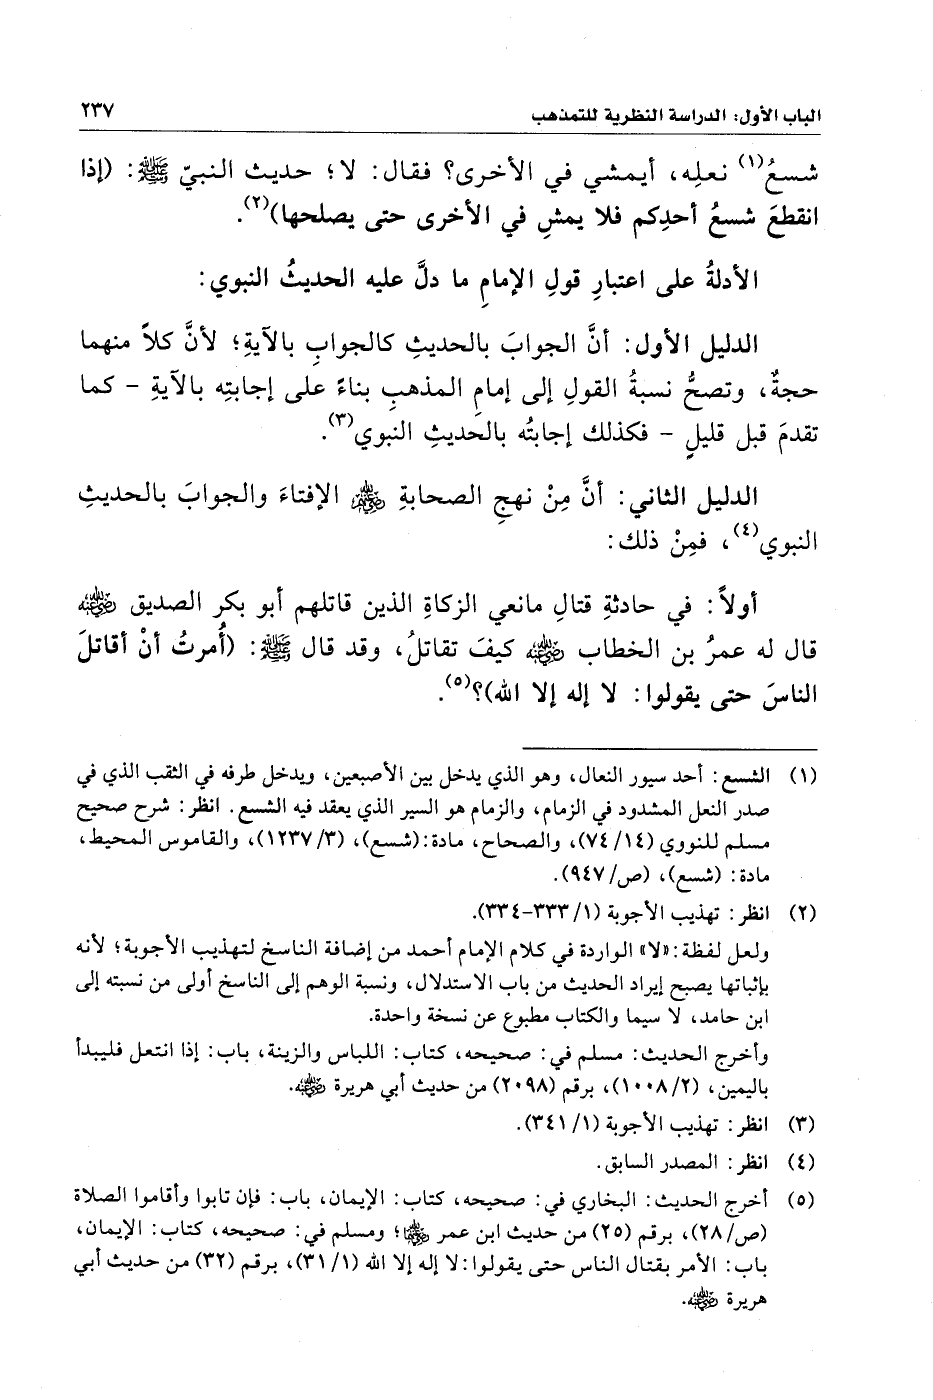 الباب الأول: الدراسة النظرية للتمذهب ٢٣٧
شسعُ(١) نعلِه، أيمشي في الأخرى؟ فقال: لا؛ حديث النبيّ ﷺ: (إذا
انقطعَ شسعُ أحدِكم فلا يمشِ في الأخرى حتى يصلحها)(٢).
الأدلةُ على اعتبارِ قولِ الإمامِ ما دلَّ عليه الحديثُ النبوي:
الدليل الأول: أنَّ الجوابَ بالحديثِ كالجوابِ بالآيةِ؛ لأنَّ كلاً منهما
حجةٌ، وتصحُّ نسبةُ القولِ إلى إمامِ المذهبِ بناءً على إجابتِه بالآيةِ - كما
تقدمَ قبل قليلٍ - فكذلك إجابتُه بالحَديثِ النبوي(٣).
الدليل الثاني: أنَّ مِنْ نهجِ الصحابةِ رضي الله عنهم الإفتاءَ والجوابَ بالحديثِ
النبوي(٤)، فمِنْ ذلك:
أولاً: في حادثةِ قتالِ مانعي الزكاةِ الذين قاتلهم أبو بكر الصديق رضي الله عنه
قال له عمرُ بن الخطاب رضي الله عنه كيفَ تقاتلُ، وقد قال ﷺ: (أُمرتُ أنْ أقاتلَ
الناسَ حتى يقولوا: لا إله إلا الله)؟(٥).
(١) الشسع: أحد سيور النعال، وهو الذي يدخل بين الأصبعين، ويدخل طرفه في الثقب الذي في
صدر النعل المشدود في الزمام، والزمام هو السير الذي يعقد فيه الشسع. انظر: شرح صحيح
مسلم للنووي (١٤/ ٧٤)، والصحاح، مادة: (شسع)، (٣/ ١٢٣٧)، والقاموس المحيط،
مادة: (شسع)، (ص/ ٩٤٧).
(٢) انظر: تهذيب الأجوبة (١/ ٣٣٣-٣٣٤).
ولعل لفظة: «لا» الواردة في كلام الإمام أحمد من إضافة الناسخ لتهذيب الأجوبة؛ لأنه
بإثباتها يصبح إيراد الحديث من باب الاستدلال، ونسبة الوهم إلى الناسخ أولى من نسبته إلى
ابن حامد، لا سيما والكتاب مطبوع عن نسخة واحدة.
وأخرج الحديث: مسلم في: صحيحه، كتاب: اللباس والزينة، باب: إذا انتعل فليبدأ
باليمين، (٢/ ١٠٠٨)، برقم (٢٠٩٨) من حديث أبي هريرة رضي الله عنه.
(٣) انظر: تهذيب الأجوبة (١/ ٣٤١).
(٤) انظر: المصدر السابق.
(٥) أخرج الحديث: البخاري في: صحيحه، كتاب: الإيمان، باب: فإن تابوا وأقاموا الصلاة
(ص/ ٢٨)، برقم (٢٥) من حديث ابن عمر رضي الله عنهما؛ ومسلم في: صحيحه، كتاب: الإيمان،
باب: الأمر بقتال الناس حتى يقولوا: لا إله إلا الله (١/ ٣١)، برقم (٣٢) من حديث أبي
هريرة رضي الله عنه.